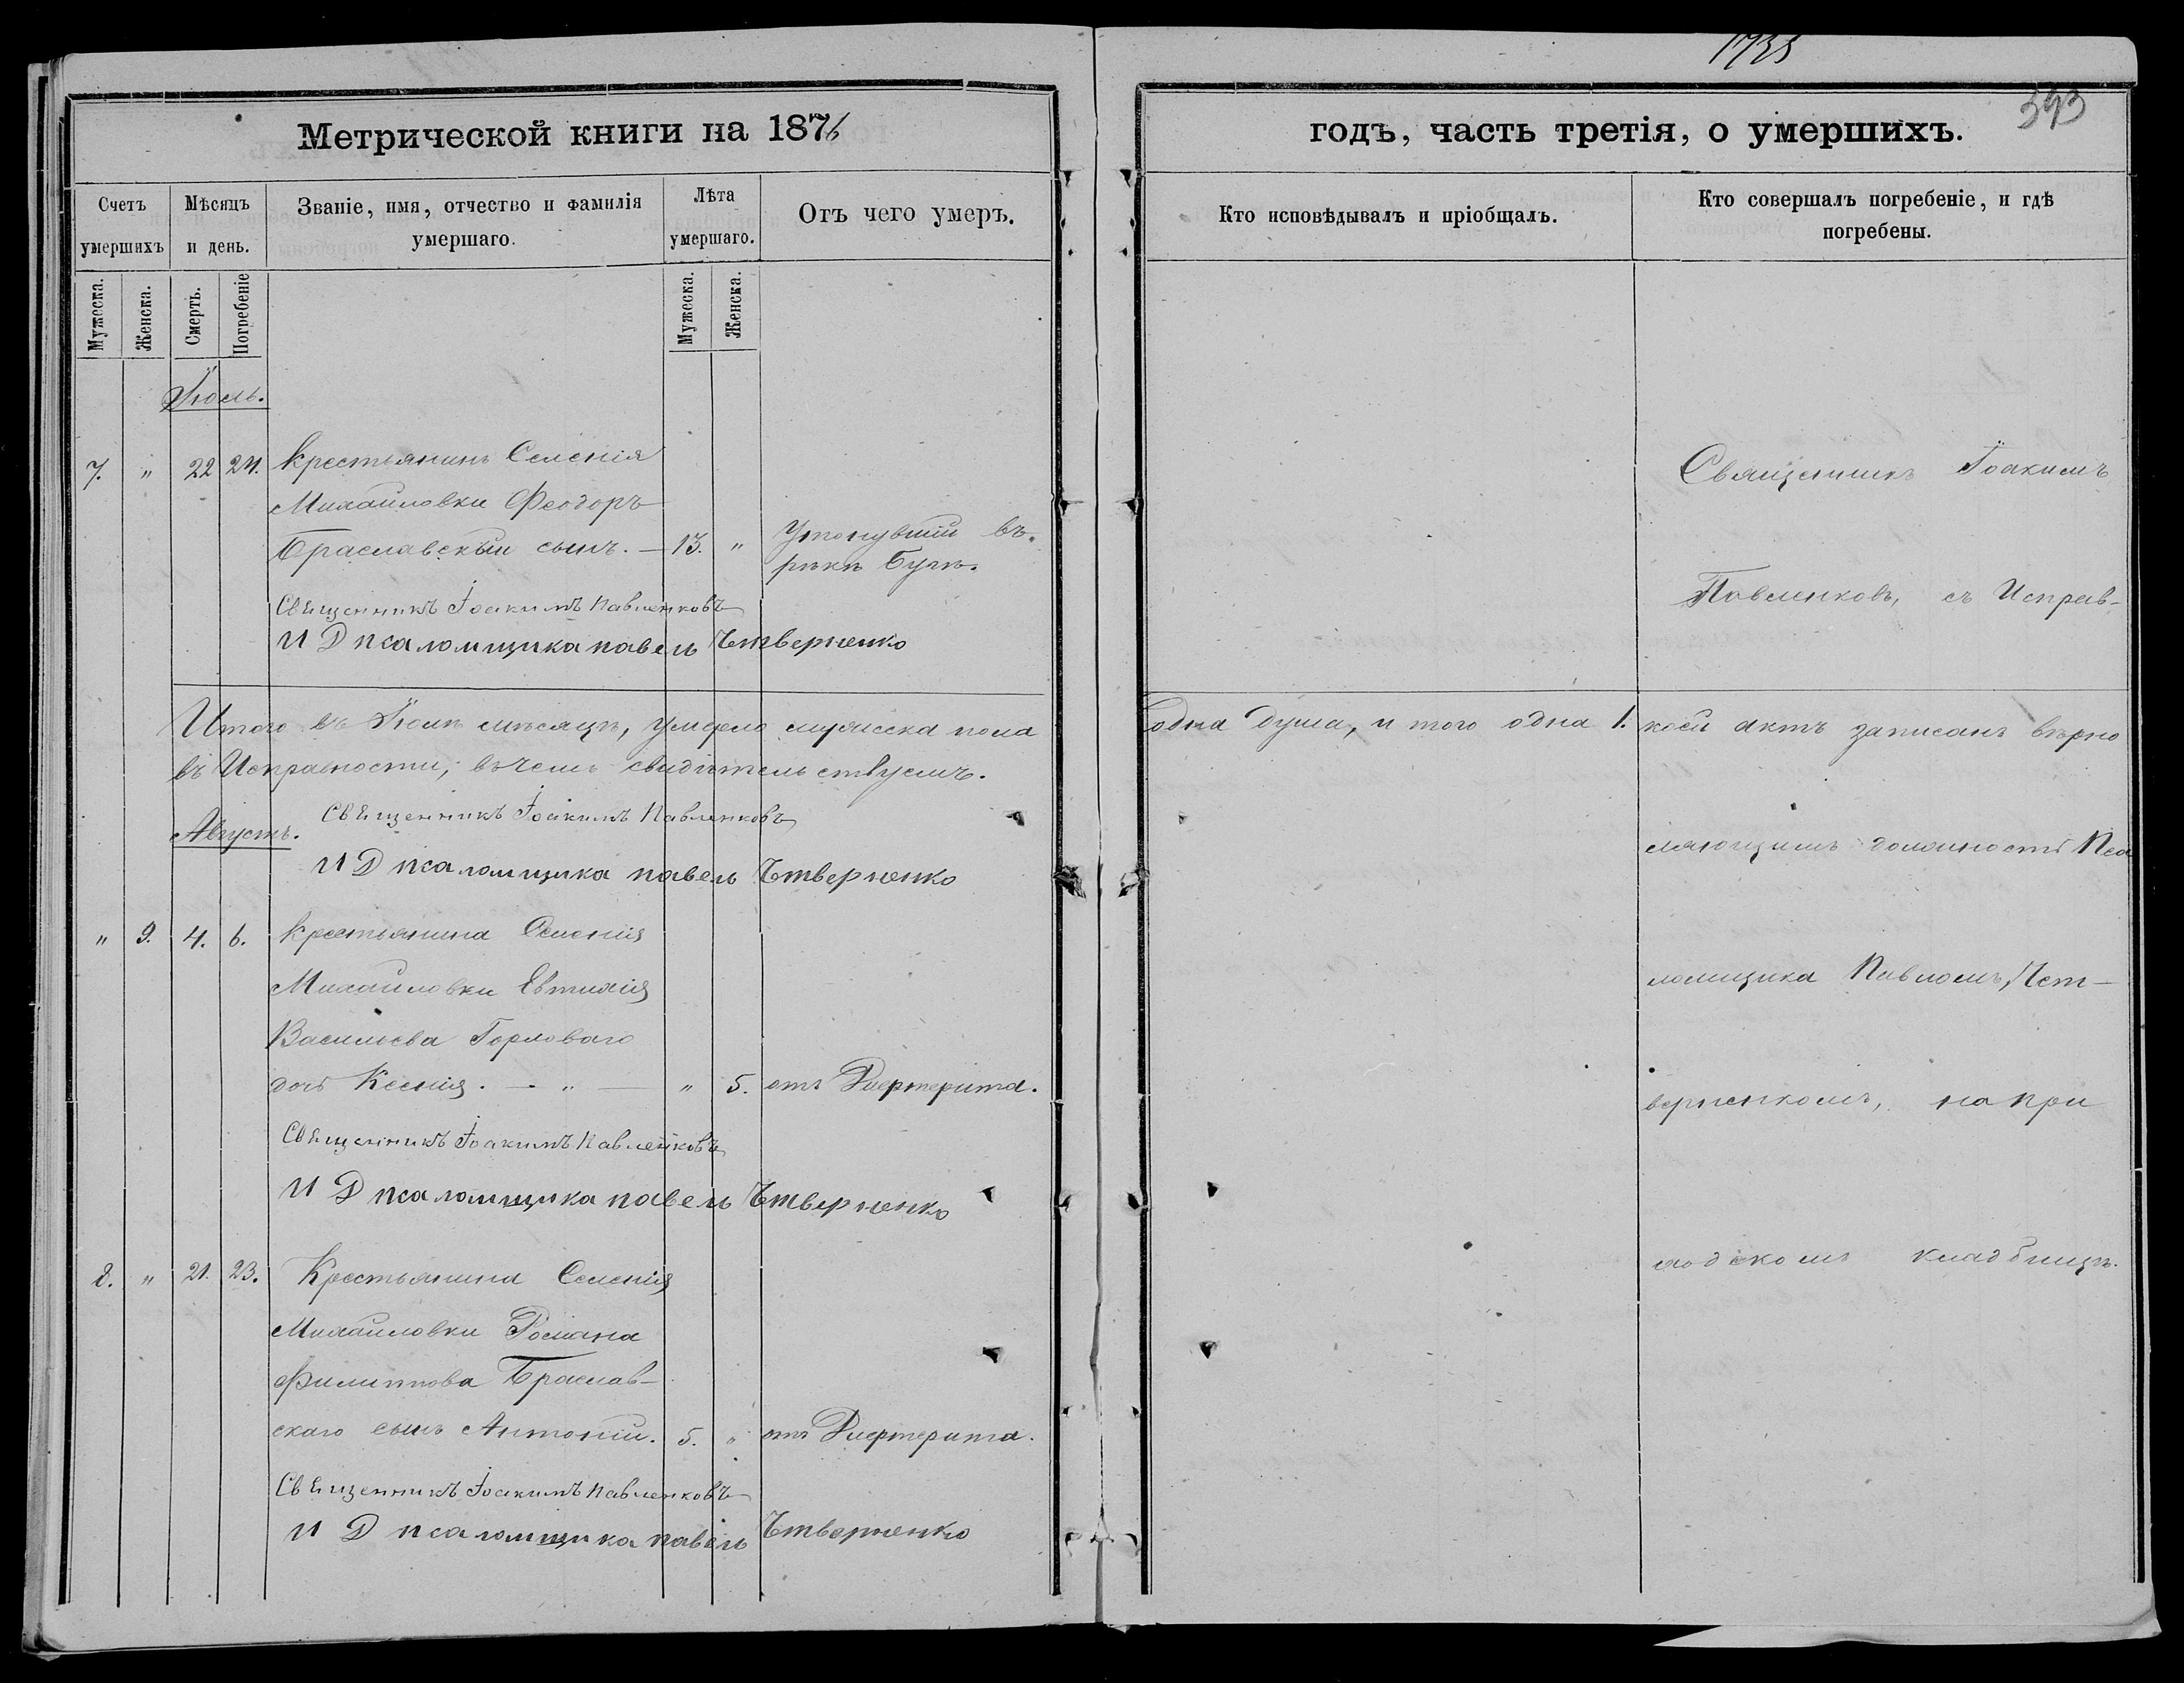 1735
393
Метрической книги на 1876
годъ, часть третія, о умершихъ.
Счетъ умершихъ
Мѣсяцъ и день.
Званіе, имя, отчество и фамилія умершаго.
Лѣта умершаго.
Отъ чего умеръ.
Кто исповѣдывалъ и пріобщалъ.
Кто совершалъ погребеніе, и гдѣ погребены.
Мужеска.
Женска.
Смерть.
Погребеніе
Мужеска.
Женска.
Іюль.
7. " 22 24. Крестьянинъ Селенія
Михайловки Феодоръ
Браславскій сынъ. — 13. " Утонувшій въ
рѣкѣ Бугѣ.
Священникъ Іоакимъ Павленковъ
И Д псаломщика павелъ Четверненко
Итого въ Іюлѣ мѣсяцѣ, умерло мужеска пола
одна душа, и того одна 1. коей актъ записанъ вѣрно
въ Исправности, въ чемъ свидѣтельствуемъ.
Священникъ Іоакимъ Павленковъ
Августъ.
И Д псаломщика павелъ Четверненко
" 9. 4. 6. Крестьянина Селенія
Михайловки Евтихія
Васильева Горловаго
дочь Ксенія. — " — " 5. отъ Дифтерита.
Священникъ Іоакимъ Павленковъ
И Д псаломщика павелъ Четверненко
8. " 21. 23. Крестьянина Селенія
Михайловки Романа
Филиппова Браслав-
скаго сынъ Антоній. 5. " отъ Дифтерита.
Священникъ Іоакимъ Павленковъ
И Д псаломщика павелъ Четверненко
Священникъ Іоакимъ
Павленковъ, съ Исправ-
ляющимъ должность Пса
ломщика Павломъ Чет-
верненкомъ, на при
ходскомъ кладбищѣ.